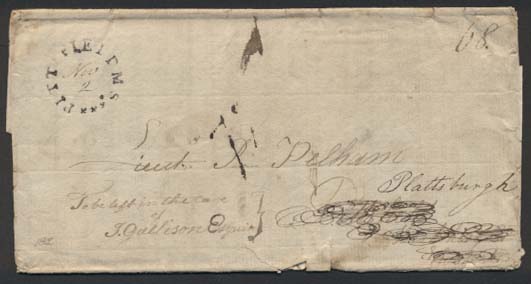 PITTSFIELD MS
Nov
2
68.
Lieut. P. Pelham
Plattsburgh
To be left in the care
of
J. Gallison Esquire